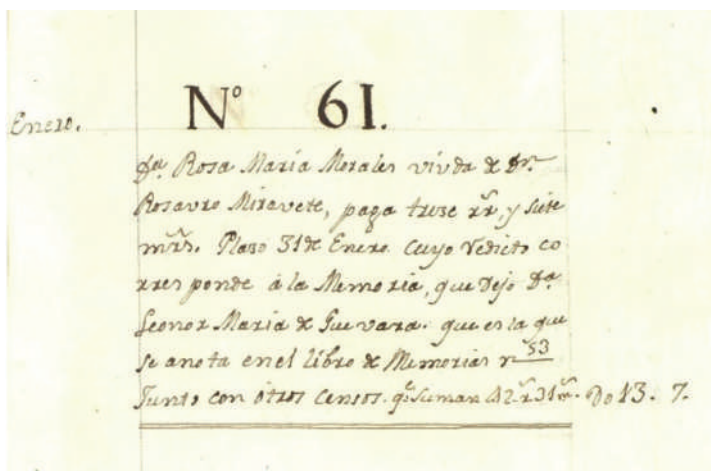 Enero.
Nº 61.
Dª Rosa Maria Morales viuda de Dn
Rosauro Miravete, paga treze rr, y siete
mrs. Plazo 31 de Enero. Cuyo redicto co
rresponde á la Memoria, que Dejo Dª
Leonor Maria de Guevara. que es la que
se anota en el libro de Memorias n 53
Junto con ótros Censos. q. Suman 42 r 31 m. Do 13. 7.